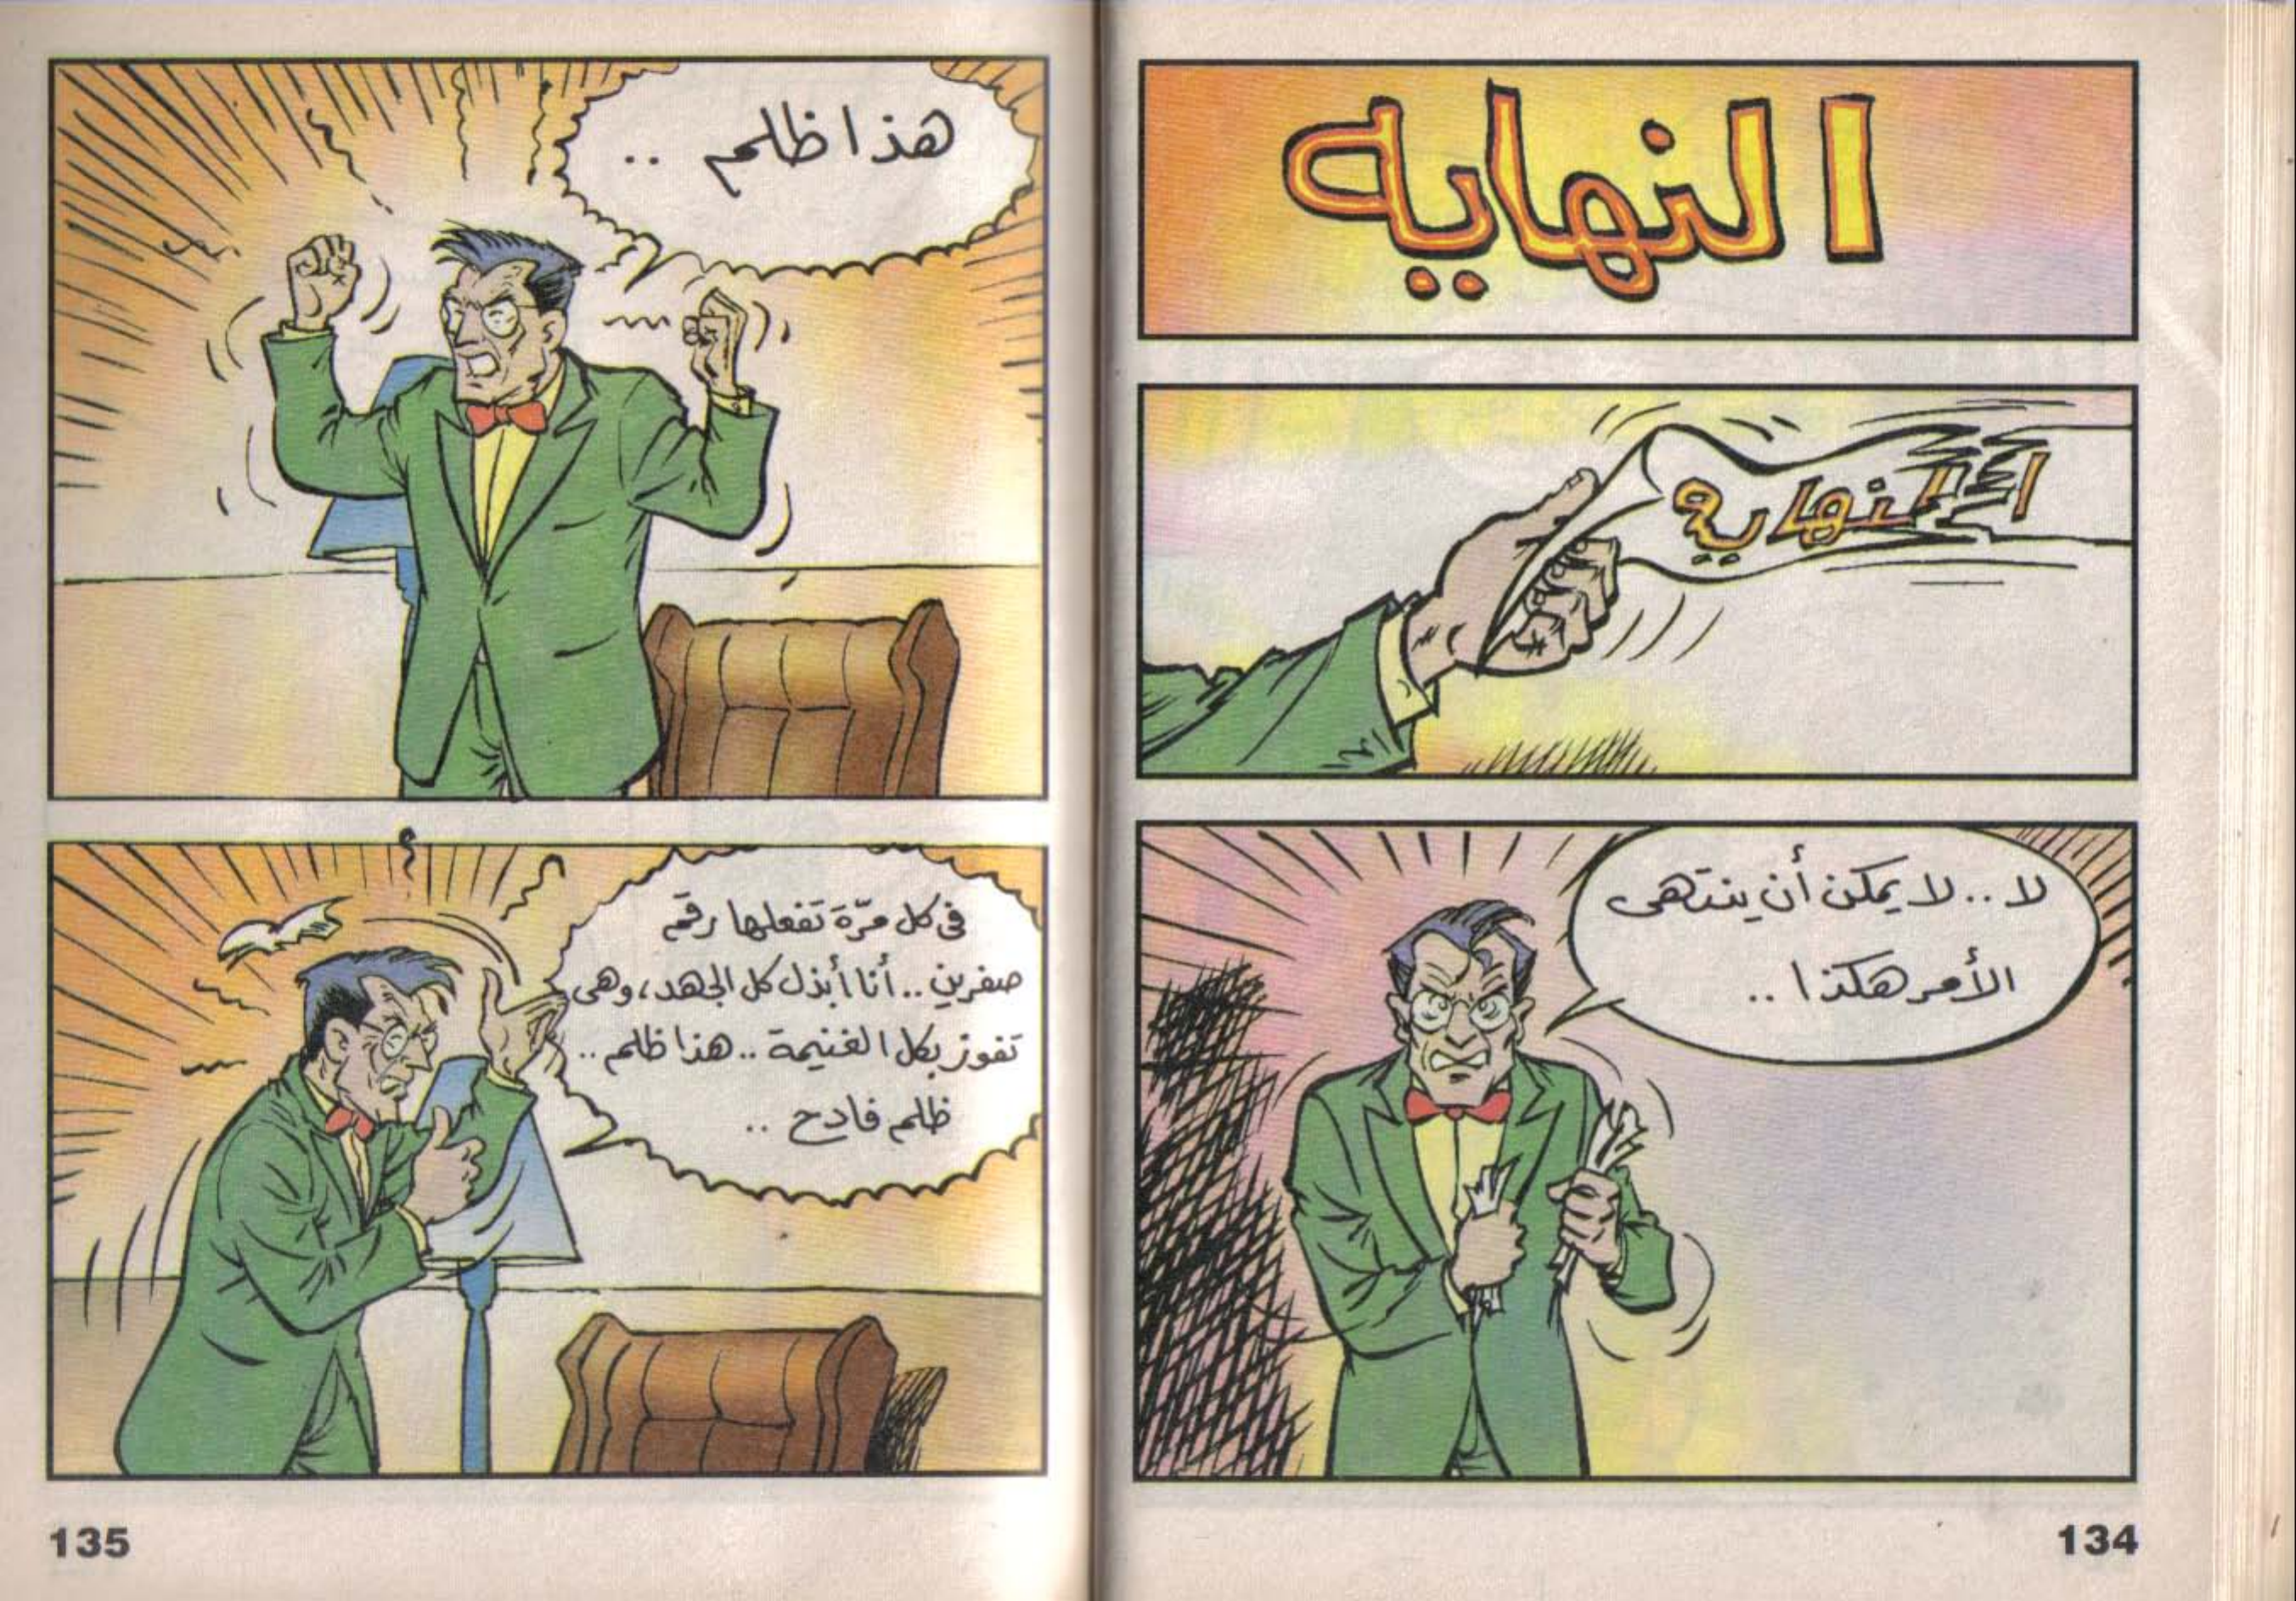 النهايه
النهاية
لا .. لا يمكن أن ينتهى
الأمر هكذا ..
134
هذا ظلم ..
فى كل مرّة تفعلها رقم
صفرين .. أنا أبذل كل الجهد، وهى
تفوز بكل الغنيمة .. هذا ظلم ..
ظلم فادح ..
135